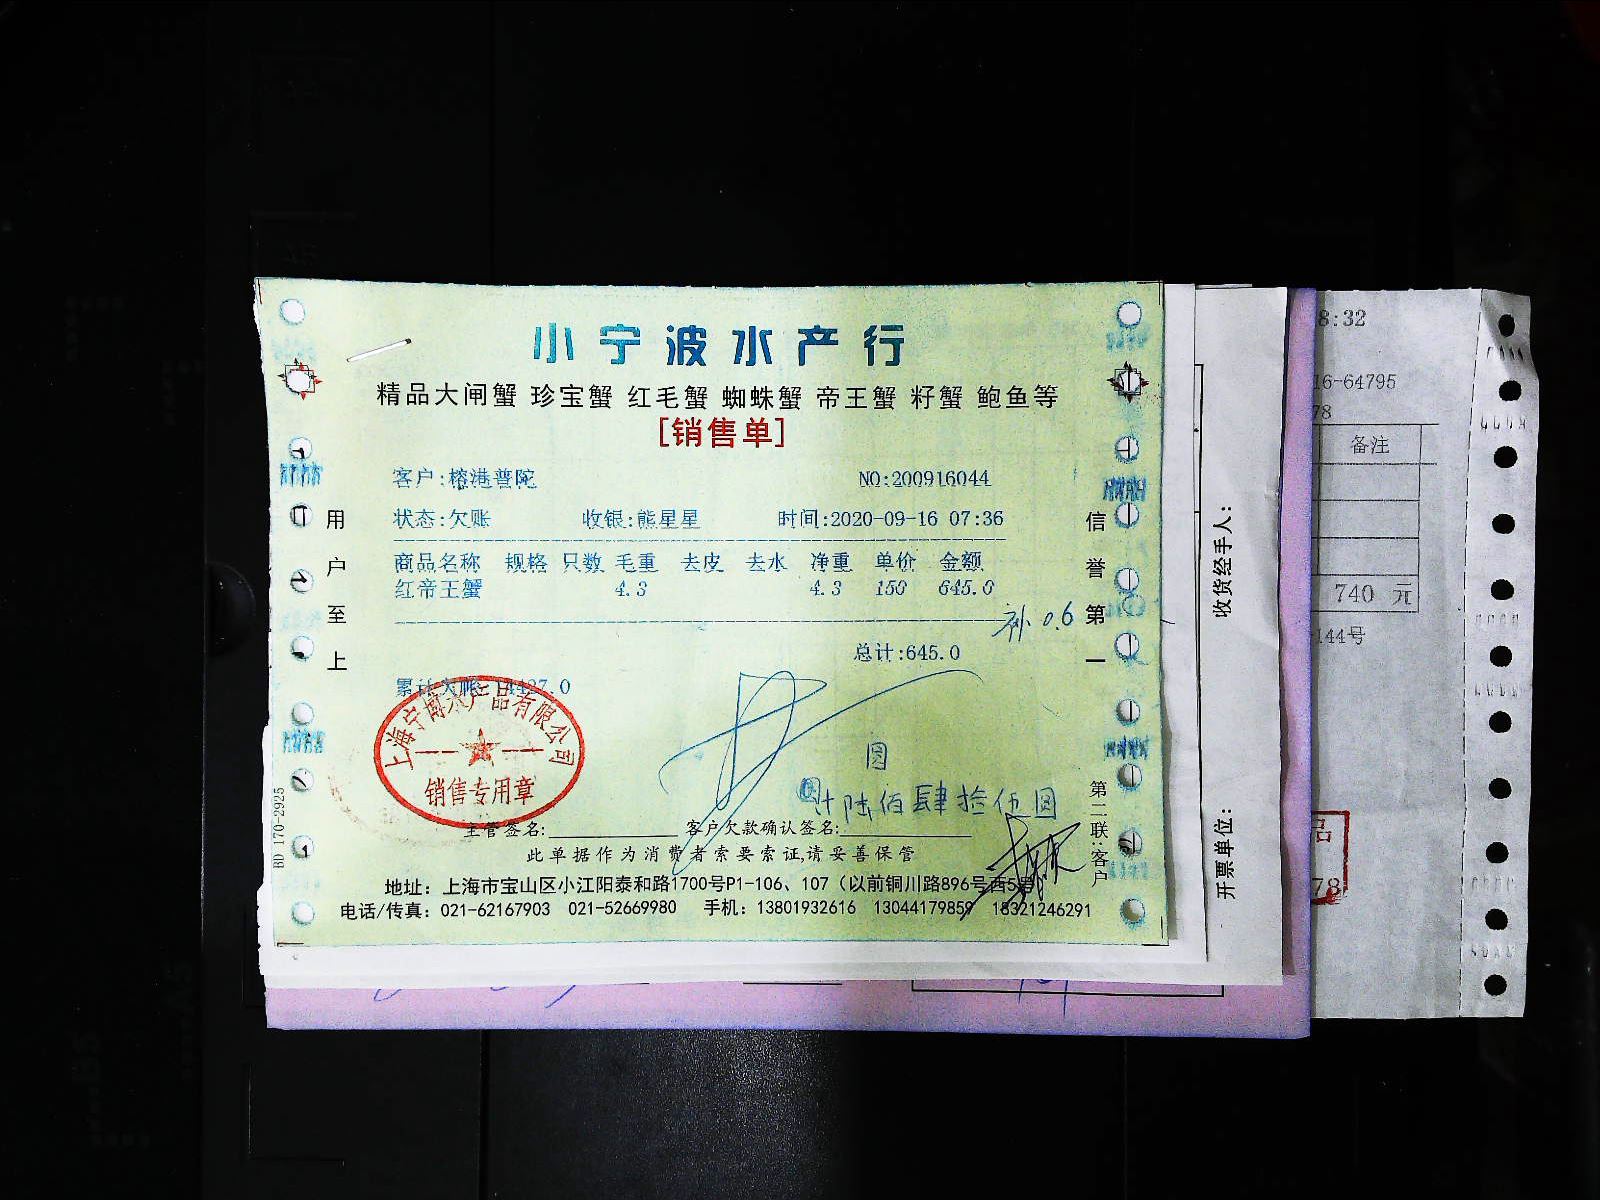 小宁波水产行
精品大闸蟹 珍宝蟹 红毛蟹 蜘蛛蟹 帝王蟹 籽蟹 鲍鱼等
[销售单]
客户:榕港普陀 NO:200916044
状态:欠账 收银:熊星星 时间:2020-09-16 07:36
商品名称 规格 只数 毛重 去皮 去水 净重 单价 金额
红帝王蟹 4.3 4.3 150 645.0
补 0.6
总计:645.0
累计欠账
上海宁博水产品有限公司
销售专用章
圆
计陆佰肆拾伍圆
主管签名: 客户欠款确认签名:
此单据作为消费者索要索证,请妥善保管
地址: 上海市宝山区小江阳泰和路1700号P1-106、107 (以前铜川路896号西5号)
电话/传真: 021-62167903 021-52669980 手机: 13801932616 13044179859 18321246291
用户至上
信誉第一
第二联:客户
BD 170-2925
收货经手人:
开票单位:
8:32
16-64795
78
备注
740 元
144号
78